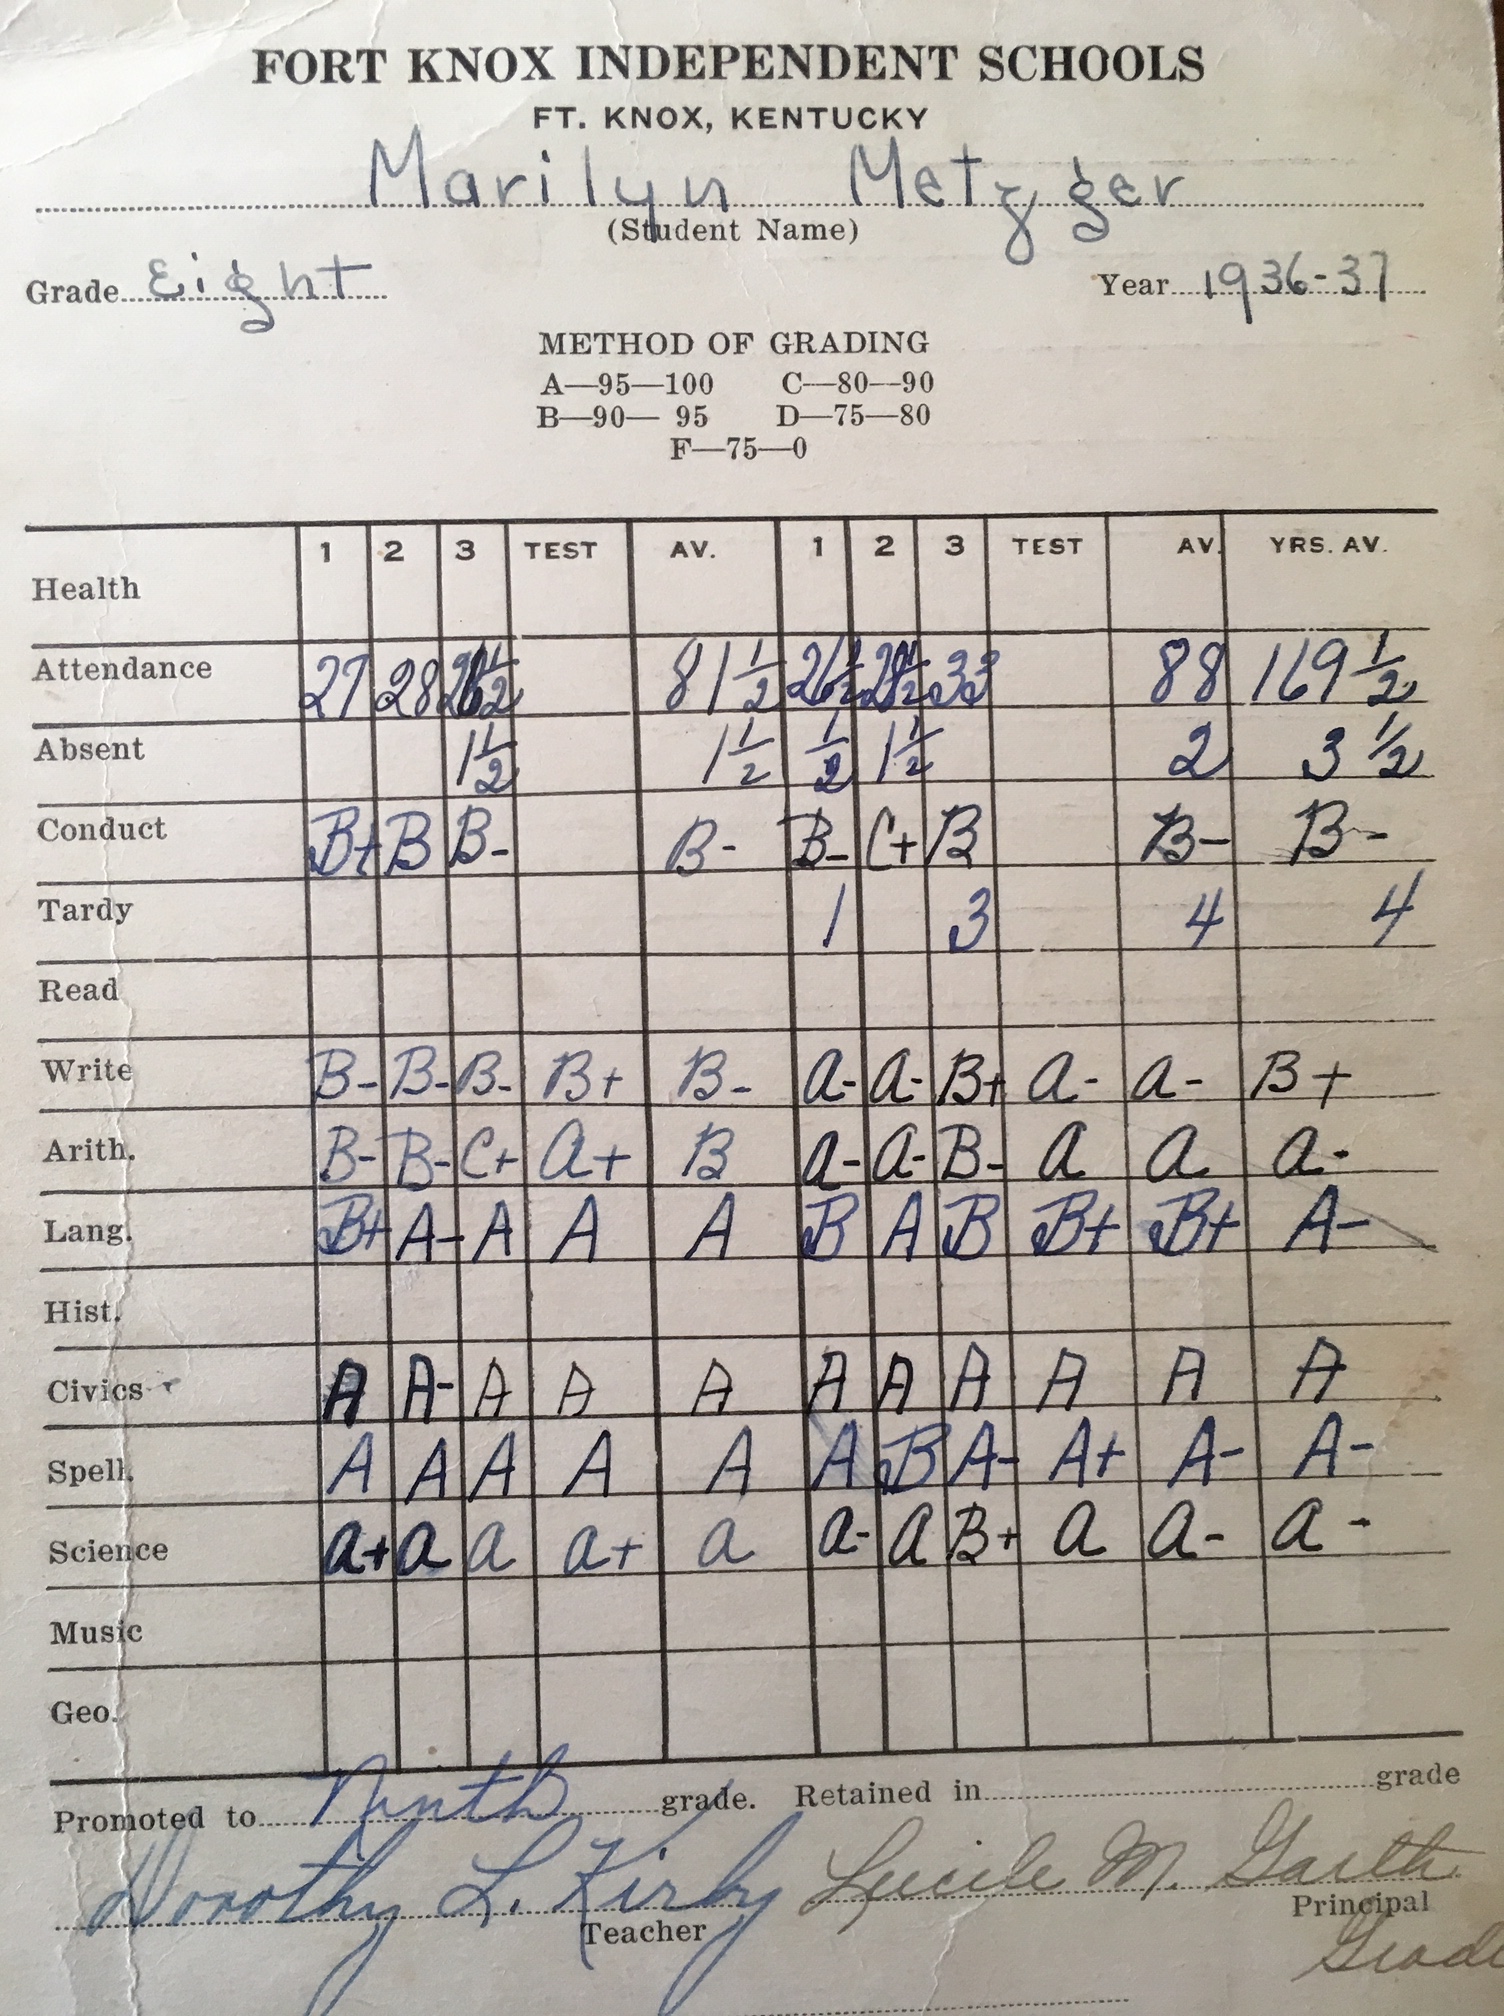 FORT KNOX INDEPENDENT SCHOOLS
FT. KNOX, KENTUCKY
Marilyn Metzger
(Student Name)
Grade Eight Year 1936-37
METHOD OF GRADING
A—95—100 C—80—90
B—90— 95 D—75—80
F—75—0
1 2 3 TEST AV. 1 2 3 TEST AV. YRS. AV.
Health
Attendance 27 28 26½ 81½ 26½ 28½ 33 88 169½
Absent 1½ 1½ ½ 1½ 2 3½
Conduct B+ B B- B- B- C+ B B- B-
Tardy 1 3 4 4
Read
Write B- B- B- B+ B- a- a- B+ a- a- B+
Arith. B- B- C+ a+ B a- a- B- a a a-
Lang. B+ A- A A A B A B B+ B+ A-
Hist.
Civics A A- A A A A A A A A A
Spell. A A A A A A B A- A+ A- A-
Science a+ a a a+ a a- a B+ a a- a-
Music
Geo.
Promoted to Ninth grade. Retained in grade
Dorothy L. Kirby Lucile M. Garth
Teacher Principal
Grade